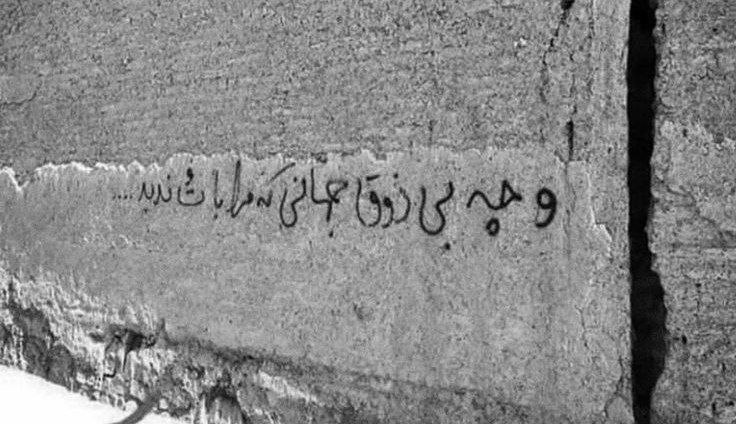 و چه بی ذوق جهانی که مرا با تُ ندید....